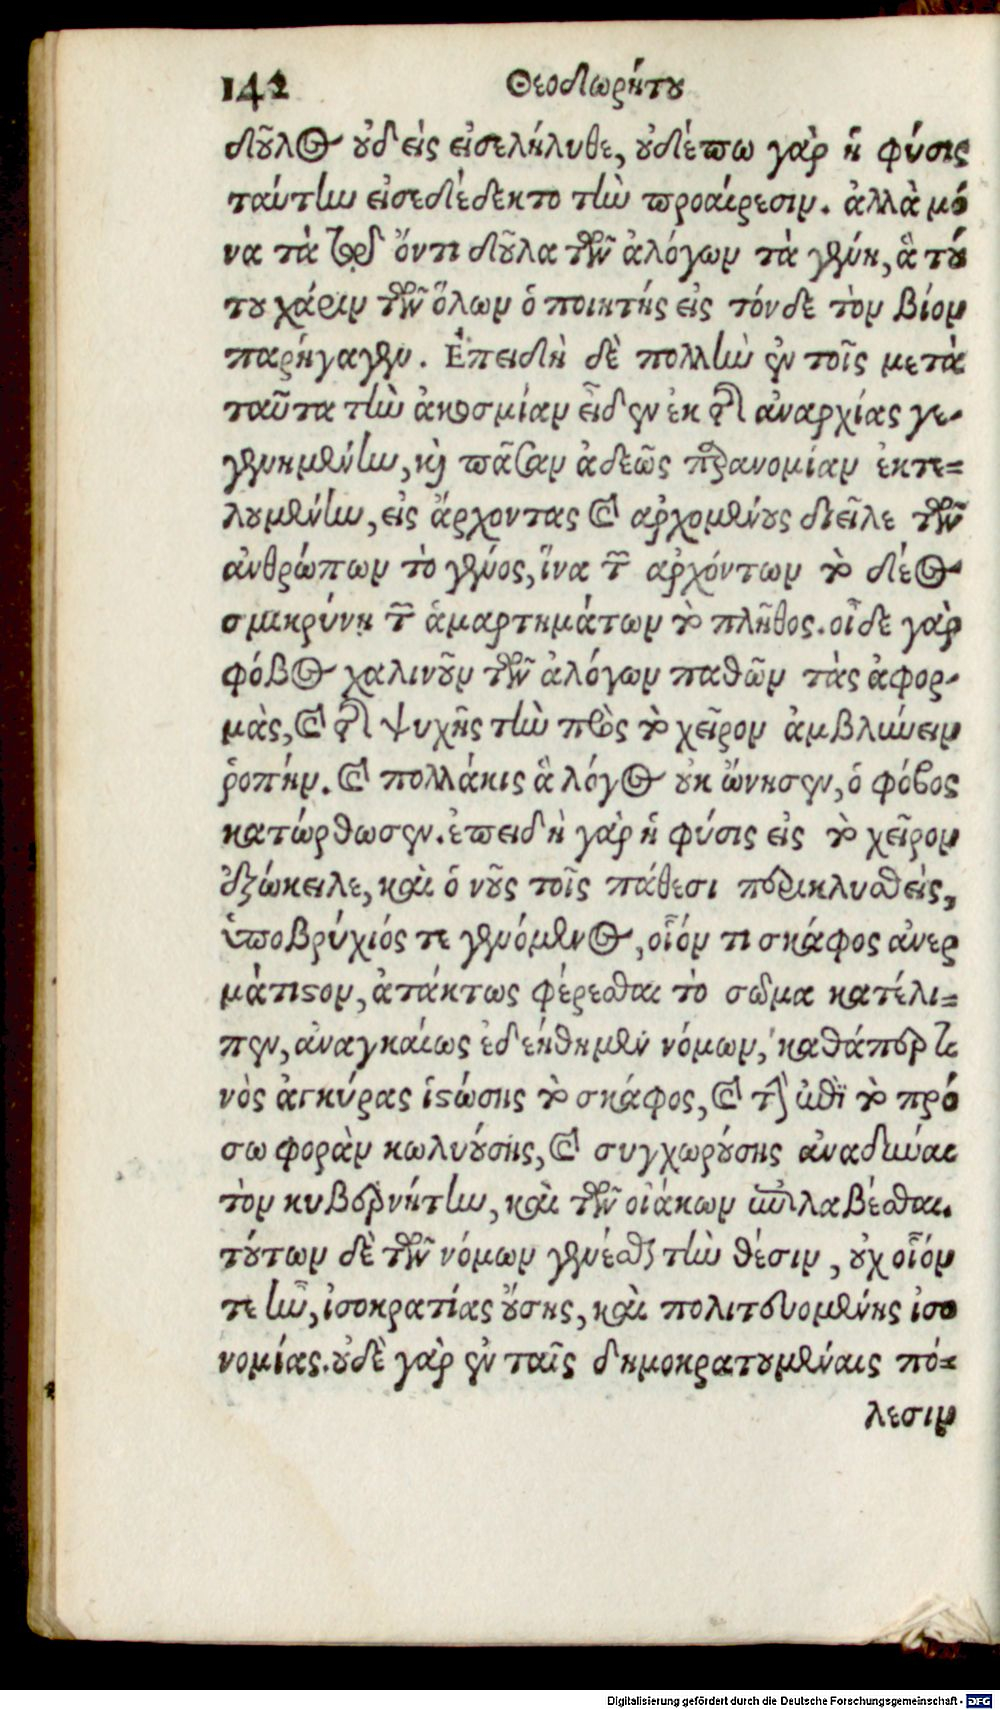 142 Θεοδωρήτου
δοῦλος οὐδεὶς εἰσελήλυθε, οὐδέπω γὰρ ἡ φύσις
ταύτην εἰσεδέδεκτο τὴν προαίρεσιν. ἀλλὰ μό
να τὰ τῷ ὄντι δοῦλα τῶν ἀλόγων τὰ γένη, ἃ τού
του χάριν τῶν ὅλων ὁ ποιητής εἰς τόνδε τὸν βίον
παρήγαγεν. Ἐπειδὴ δὲ πολλὴν ἐν τοῖς μετὰ
ταῦτα τὴν ἀκοσμίαν εἶδεν ἐκ τῆς ἀναρχίας γε-
γενημένην, καὶ πᾶσαν ἀδεῶς παρανομίαν ἐκτε=
λουμένην, εἰς ἄρχοντας καὶ ἀρχομένους διεῖλε τῶν
ἀνθρώπων τὸ γένος, ἵνα τῶν ἀρχόντων τὸ δέος
σμικρύνῃ τῶν ἁμαρτημάτων τὸ πλῆθος. οἶδε γὰρ
φόβος χαλινοῦν τῶν ἀλόγων παθῶν τὰς ἀφορ-
μὰς, καὶ τῆς ψυχῆς τὴν πρὸς τὸ χεῖρον ἀμβλύνειν
ῥοπήν. καὶ πολλάκις ἃ λόγος οὐκ ὤνησεν, ὁ φόβος
κατώρθωσεν. ἐπειδὴ γὰρ ἡ φύσις εἰς τὸ χεῖρον
ἐξώκειλε, καὶ ὁ νοῦς τοῖς πάθεσι περικλυσθεὶς,
ὑποβρύχιός τε γενόμενος, οἷόν τι σκάφος ἀνερ
μάτιστον, ἀτάκτως φέρεσθαι τὸ σῶμα κατέλι=
πεν, ἀναγκαίως ἐδεήθημεν νόμων, καθάπερ τι
νὸς ἀγκύρας ἱστώσης τὸ σκάφος, καὶ τὴν ἐπὶ τὸ πρό
σω φορὰν κωλυούσης, καὶ συγχωρούσης ἀναδῦναι
τὸν κυβερνήτην, καὶ τῶν οἰάκων ἐπιλαβέσθαι.
τούτων δὲ τῶν νόμων γενέσθαι τὴν θέσιν, οὐχ οἷόν
τε ἦν, ἰσοκρατίας οὔσης, καὶ πολιτευομένης ἰσο
νομίας. οὐδὲ γὰρ ἐν ταῖς δημοκρατουμέναις πό=
λεσιν
Digitalisierung gefördert durch die Deutsche Forschungsgemeinschaft - DFG